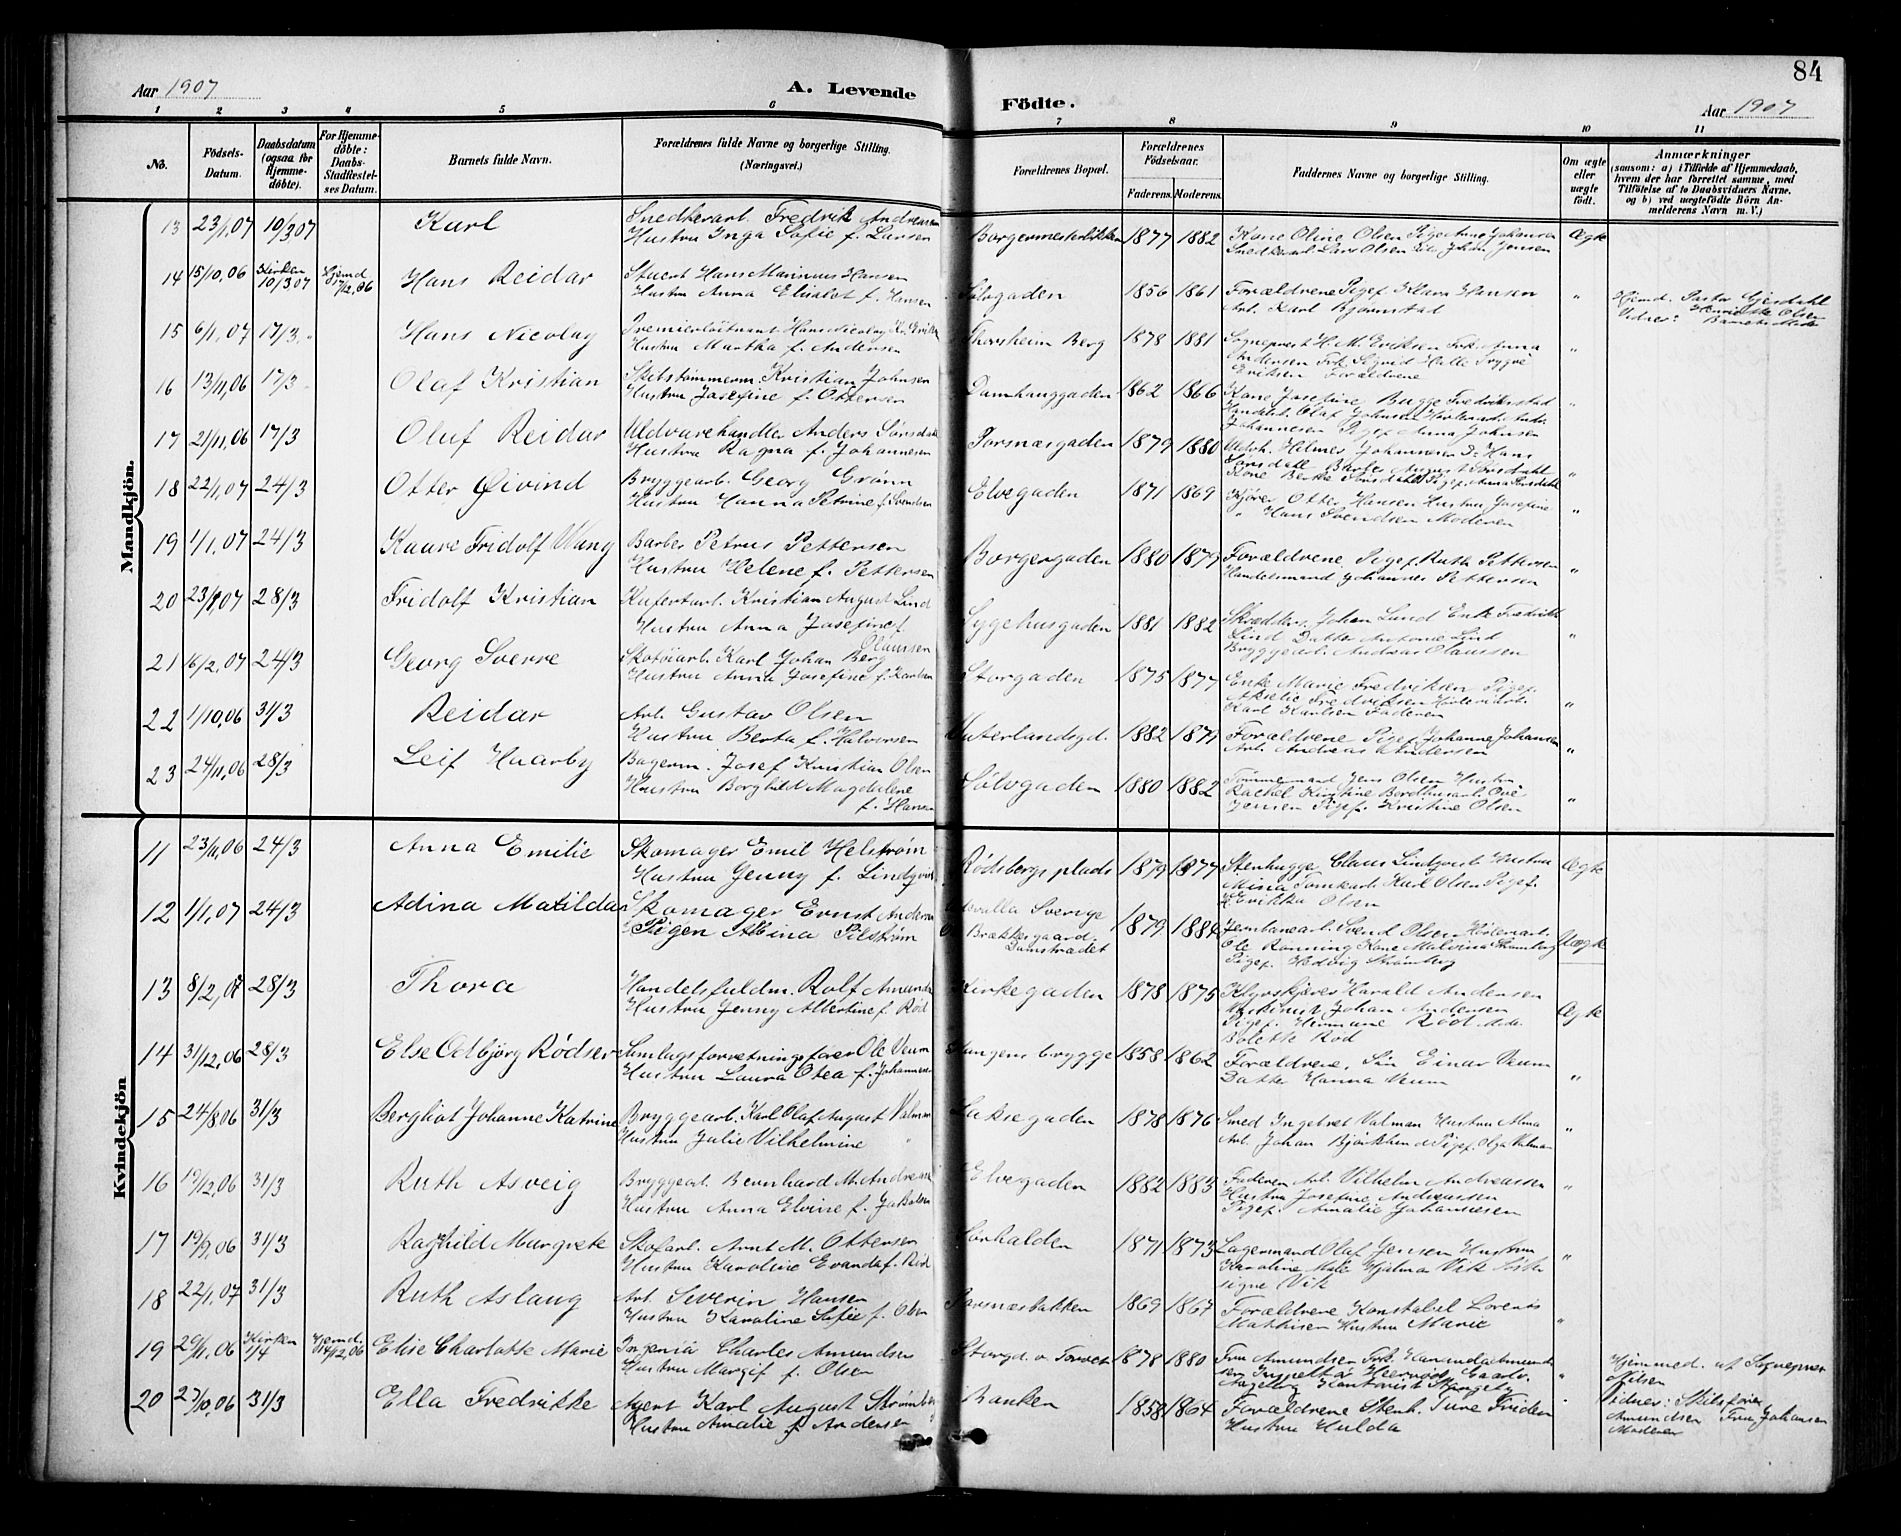 84
Aar 1907
A. Levende
Födte.
Aar 1907
1 2 3 4 5 6 7 8 9 10 11
No.
Födsels-Datum.
Daabsdatum (ogsaa for Hjemme-döbte).
For Hjemme-döbte: Daabs-Stadfæstel-ses Datum.
Barnets fulde Navn.
Forældrenes fulde Navne og borgerlige Stilling. (Næringsvei.)
Forældrenes Bopæl.
Forældrenes Födselsaar.
Faderens. Moderens.
Faddernes Navne og borgerlige Stilling.
Om ægte eller uægte födt.
Anmærkninger
(saasom: a) i Tilfælde af Hjemmedaab, hvem der har forrettet samme, med Tilföielse af to Daabsvidners Navne. og b) ved uægtefödte Börn An-melderens Navn m. V.)
Mandkjön.
13 23/1.07 10/3.07 Karl Snedkerarb. Fredrik Andreassen
Hustru Inga Sofie f. Larsen
Borgermesterløkken 1877 1882 Kone Oline Olsen Pige Anna Johansen
Snedkerarb. Lars Olsen Johan Jensen
Ægte
14 15/10.06 Kirken 10/3.07 Hjemd 17/12.06 Hans Reidar Stuert Hans Marinius Hansen
Hustru Anna Elisabet f. Hansen
Sølvgaden 1856 1861 Forældrene Pigef. Klara Hansen
Arb. Karl Bjørnstad
" Hjemd. Pastor Gjesdahl
Vidner: Henriette Olsen
Barnets Moder
15 6/1.07 17/3 " Hans Nicolay Premierløitnant Hans Nicolay Kr. Eriksen
Hustru Martha f. Andersen
Thorsheim Berg 1878 1881 Sogneprest H. M. Eriksen Frk. Anna
Andersen Frk. Sigrid Halle Trygve
Eriksen Forældrene
"
16 13/11.06 17/3 Olaf Kristian Skibstømmerm. Kristian Johnsen
Hustru Josefine f. Ottersen
Damhauggaden 1862 1866 Kone Josefine Bugge Fredriksstad
Handelsb. Olaf Johnsen
Johannesen Pigef. Anna Johnsen
"
17 21/11.06 17/3 Oluf Reidar Uldvarehandler Anders Sørsdahl
Hustru Ragna f. Johannesen
Torsnæsgaden 1879 1880 Uldvh. Helmer Johannesen Do Hans
Sørsdahl Barber August Sørsdahl
Kone Berthe Sørsdahl Pigef. Anna Sørsdahl
"
18 22/1.07 24/3 Otter Øivind Bryggearb. Georg Grønn
Hustru Hanna Petrine f. Svendsen
Elvegaden 1871 1869 Kjører Otter Hansen Hustru Josefine
" Hans Svendsen Moderen
"
19 1/1.07 24/3 Kaare Fridolf Wang Barber Petrus Pettersen
Hustru Helene f. Pettersen
Borgergaden 1880 1879 Forældrene Pigef. Ruth Pettersen
Handelsmand Johannes Pettersen
"
20 23/1 07 28/3 Fridolf Kristian Kufertarb. Kristian August Lind
Hustru Anna Josefine f. Olaussen
Sygehusgaden 1881 1882 Skrædder Johan Lund Enke Fredrikke
Lind Datter Antonie Lind
Bryggearb. Andreas Olaussen
"
21 16/2.07 24/3 Georg Sverre Skotøiarb. Karl Johan Berg
Hustru Anna Josefine f. Karlsen
Storgaden 1875 1877 Enke Marie Fredriksen Pigef.
Akselie Fredriksen Høvleriarb.
Karl Karlsen Faderen
"
22 1/10.06 31/3 Reidar Arb. Gustav Olsen
Hustru Berta f. Halvorsen
Vaterlandsgd. 1882 1879 Forældrene Pigef. Johanne Johansen
Arb. Andreas Andersen
"
23 24/11.06 28/3 Leif Haarby Bagerm. Josef Kristian Olsen
Hustru Borghild Magdalene
f. Hansen
Sølvgaden 1880 1882 Tømmermand Jens Olsen Hustru
Rachel Kirstine Bordhusarb. Ove
Jensen Pigef. Kristine Olsen
"
Kvindekjön
11 23/11.06 24/3 Anna Emilie Skomager Emil Helstrøm
Hustru Jenny f. Lindqvist
Rødsbergs plads 1879 1877 Stenhugger Claus Lindqvist Hustru
Mina Tomtearb. Karl Olsen Pigef.
Henrikka Olsen
Ægte
12 1/1.07 24/3 Adina Matilda Skomager Ernst Andersen
Pigen Albina Pilstrøm
Uddevalla Sverige
Brækkegaard
Damstrædet
1879 1884 Jernbanearb. Svend Olsen Høvleriarb.
Ole Rønning Kone Malvina Strømberg
Pigef. Hedvig Strømberg
Uægte
13 8/2.07 28/3 Thora Handelsfuldm. Rolf Amundsen
Hustru Jenny Albertine f. Rød
Kirkegaden 1878 1875 Harald Andersen
Maskinist Johan Andersen
Pigef. Hermane Rød
Bolette Rød
Ægte
14 31/12.06 28/3 Else Oelbjörg Rødser Samlagsforretningsfører Ole Veum
Hustru Laura Otea f. Johannesen
Tangens brygge 1858 1862 Forældrene, Søn Einar Veum
Datter Hanna Veum
"
15 24/8.06 31/3 Berghliot Johanne Katrine Bryggearb. Karl Olaf August Valman
Hustru Julie Vilhelmine "
Laksegaden 1878 1876 Smed Ingebret Valman Hustru Alma
Arb. Johan Bjørkhend Pigef. Olga Valman
"
16 19/12.06 31/3 Ruth Asveig Bryggearb. Bernhard M. Andreassen
Hustru Anna Elvine f. Jakobsen
Elvegaden 1882 1883 Faderen Arb. Vilhelm Andreassen
Hustru Josefine Andreassen
Pigef. Amalie Johannesen
"
17 19/9.06 31/3 Raghild Margrete Skofarb. Arnt M. Ottersen
Hustru Karoline Evanda f. Rød
Sørhalden 1871 1873 Lagermand Olaf Jensen Hustru
Karoline Maler Hjalmar Vik
Signe Vik
"
18 22/1.07 31/3 Ruth Aslaug Arb. Severin Hansen
Hustru Karoline Sofie f. Olsen
Torsnæsbakken 1869 1867 Forældrene Konstabel Lorents
Mathisen Hustru Marie
"
19 20/11.06 Kirken 1/4 Hjemd. 14/12.06 Elise Charlotte Marie Ingeniør Charles Amundsen
Hustru Margit f. Olsen
Storgd. v. Torvet 1878 1880 Fru Amundsen Frk. Amundsen
"
Hjemmed. af Sogneprest
Nilsen
Vidner: Skibsfører
Amundsen Fru Johansen
Moderen
20 27/10.06 31/3 Ella Fredrikke Agent Karl August Strömberg
Hustru Amalie f. Andersen
Banken 1858 1864 Forældrene Stenh. Ture Friden
Hustru Hulda
"